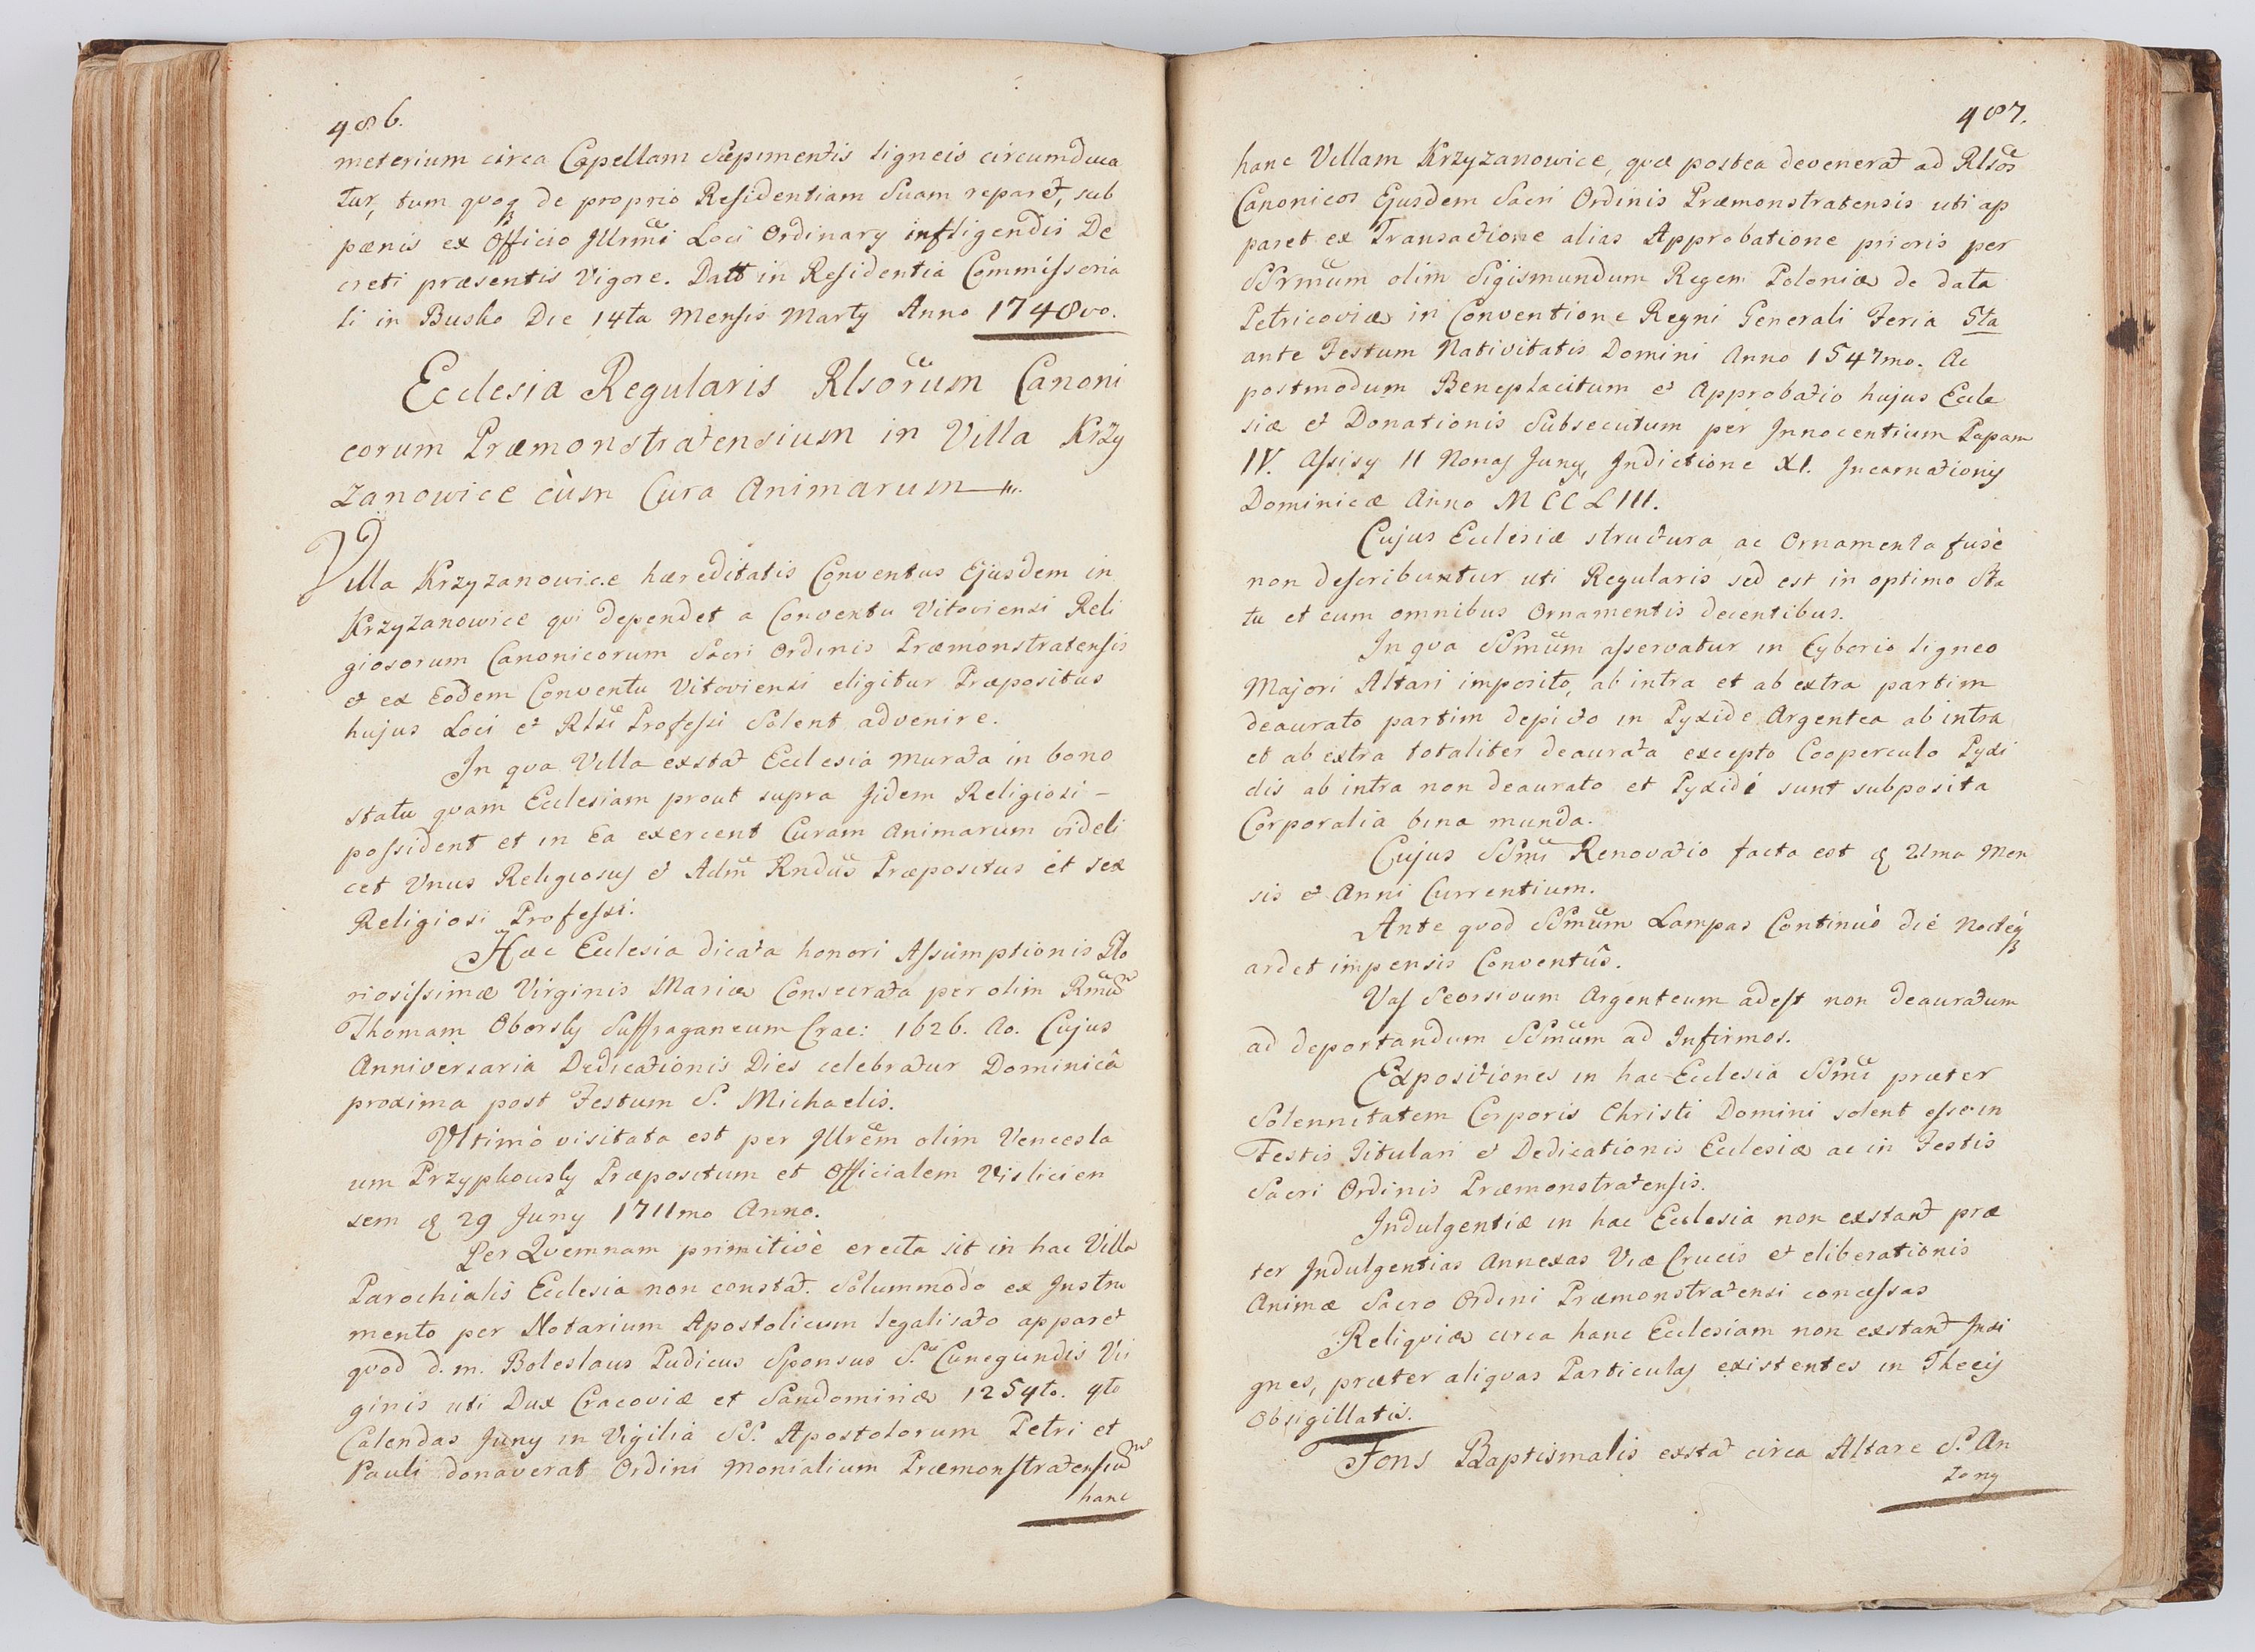 486.
meterium circa Capellam Sæpimentis ligneis circumduca
tur, tum quoq; de proprio Residentiam Suam reparet, sub
pœnis ex Officio Illrmi Loci Ordinary infligendis De
creti præsentis Vigore. Datt in Residentia Commissoria
li in Busko Die 14ta Mensis Marty Anno 1748vo.
Ecclesia Regularis Rlsorum Canoni
corum Præmonstratensium in Villa Krzy
zanowice cùm Cura Animarum
Villa Krzyzanowice hæreditatis Conventus Ejusdem in
Krzyzanowice qvi dependet a Conventu Vitoviensi Reli
giosorum Canonicorum Sacri Ordinis Præmonstratensis
et ex Eodem Conventu Vitoviensi eligitur Præpositus
hujus Loci et Rlsi Professi Solent advenire.
In qva Villa exstat Ecclesia murata in bono
statu qvam Ecclesiam prout supra Iidem Religiosi -
possident et in Ea exercent Curam Animarum videli
cet Unus Religiosus et Adm Rndus Præpositus et sex
Religiosi Professi.
Hæc Ecclesia dicata honori Assumptionis Glo
riosissimæ Virginis Mariæ Consecrata per olim Rmum
Thomam Oborsky Suffraganeum Crac: 1626. Ao. Cujus
Anniversaria Dedicationis Dies celebratur Dominicâ
proxima post Festum S. Michaelis.
Ultimò visitata est per Illrem olim Vencesla
um Przypkowsky Præpositum et Officialem Vislicien
sem d 29 Juny 1711mo Anno.
Per Qvemnam primitivè erecta sit in hac Villa
Parochialis Ecclesia non constat. Solummodo ex Instru
mento per Notarium Apostolicum legalisato apparet
qvod d. m. Boleslaus Pudicus Sponsus S.tæ Cunegundis Vir
ginis uti Dux Cracoviæ et Sandomiriæ 1254to. 4to
Calendas Juny in Vigilia SS. Apostolorum Petri et
Pauli donaverat Ordini Monialium Præmonstratensium
hanc
487.
hanc Villam Krzyzanowice, qvæ postea devenerat ad Rlsos
Canonicos Ejusdem Sacri Ordinis Præmonstratensis uti ap
paret ex Transactione alias Approbatione prioris per
SSrmum olim Sigismundum Regem Poloniæ de data
Petricoviæ in Conventione Regni Generali Feria 5ta
ante Festum Nativitatis Domini Anno 1547mo. Ac
postmodum Beneplacitum et Approbatio hujus Eccle
siæ et Donationis Subsecutum per Innocentium Papam
IV. Assisy II Nonas Juny, Indictione XI. Incarnationis
Dominicæ Anno MCCLIII.
Cujus Ecclesiæ structura ac Ornamenta fusè
non describuntur uti Regularis sed est in optimo Sta
tu et cum omnibus Ornamentis decentibus.
In qva SSmum asservatur in Cyborio ligneo
Majori Altari imposito, ab intra et ab extra partim
deaurato partim depicto in Pyxide Argentea ab intra
et ab extra totaliter deaurata excepto Cooperculo Pyxi
dis ab intra non deaurato et Pyxidi sunt subposita
Corporalia bina munda.
Cujus SSmi Renovatio facta est d 21ma Men
sis et Anni Currentium.
Ante qvod SSmum Lampas Continuò die Nocteq;
ardet impensis Conventûs.
Vas Seorsivum Argenteum adest non deauratum
ad deportandum SSmum ad Infirmos.
Expositiones in hac Ecclesia SSmi præter
Solennitatem Corporis Christi Domini solent esse in
Festis Titulari et Dedicationis Ecclesiæ ac in Festis
Sacri Ordinis Præmonstratensis.
Indulgentiæ in hac Ecclesia non exstant præ
ter Indulgentias Annexas Viæ Crucis et eliberationis
Animæ Sacro Ordini Præmonstratensi concessas
Reliqviæ circa hanc Ecclesiam non exstant Insi
gnes, præter aliqvas Particulas existentes in Thecis
Obsigillatis.
Fons Baptismalis exstat circa Altare S. An
tony